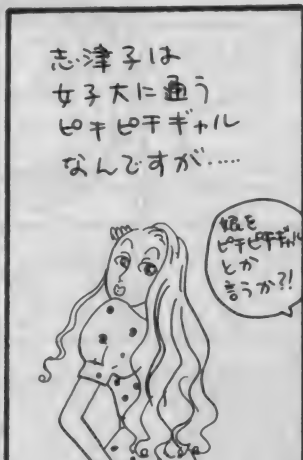 志津子は
女子大に通う
ピチピチギャル
なんですが……
娘を
ピチピチギャル
とか
言うか?!